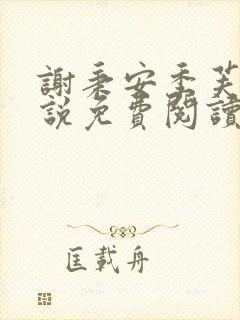 謝秉安季芙
說免費閱讀
匡載舟